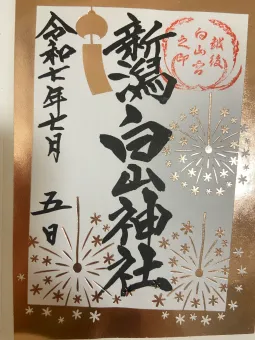 越後
白山宮
之印
新潟白山神社
令和七年七月
五日